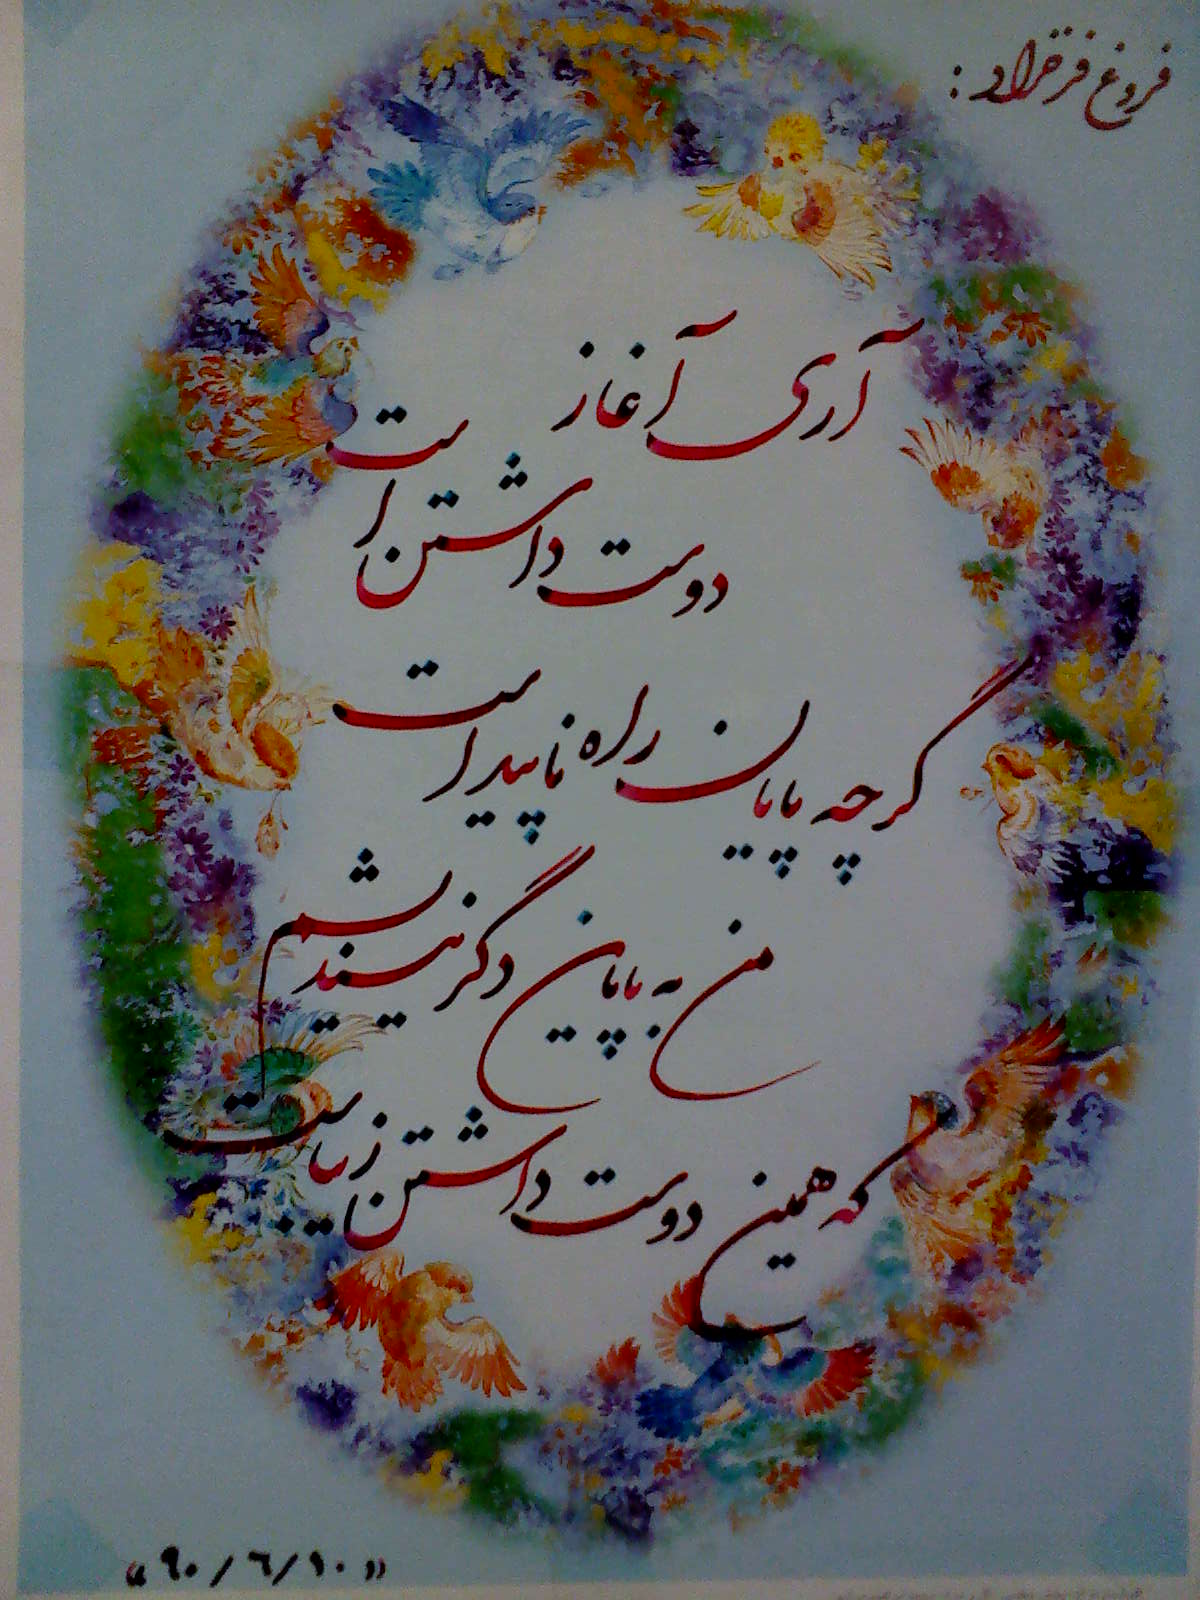 فروغ فرخزاد:
آری آغاز
دوست داشتن است
گرچه پایان راه ناپیداست
من به پایان دگر نیندیشم
که همین دوست داشتن زیباست
«۹۰/۶/۱۰»